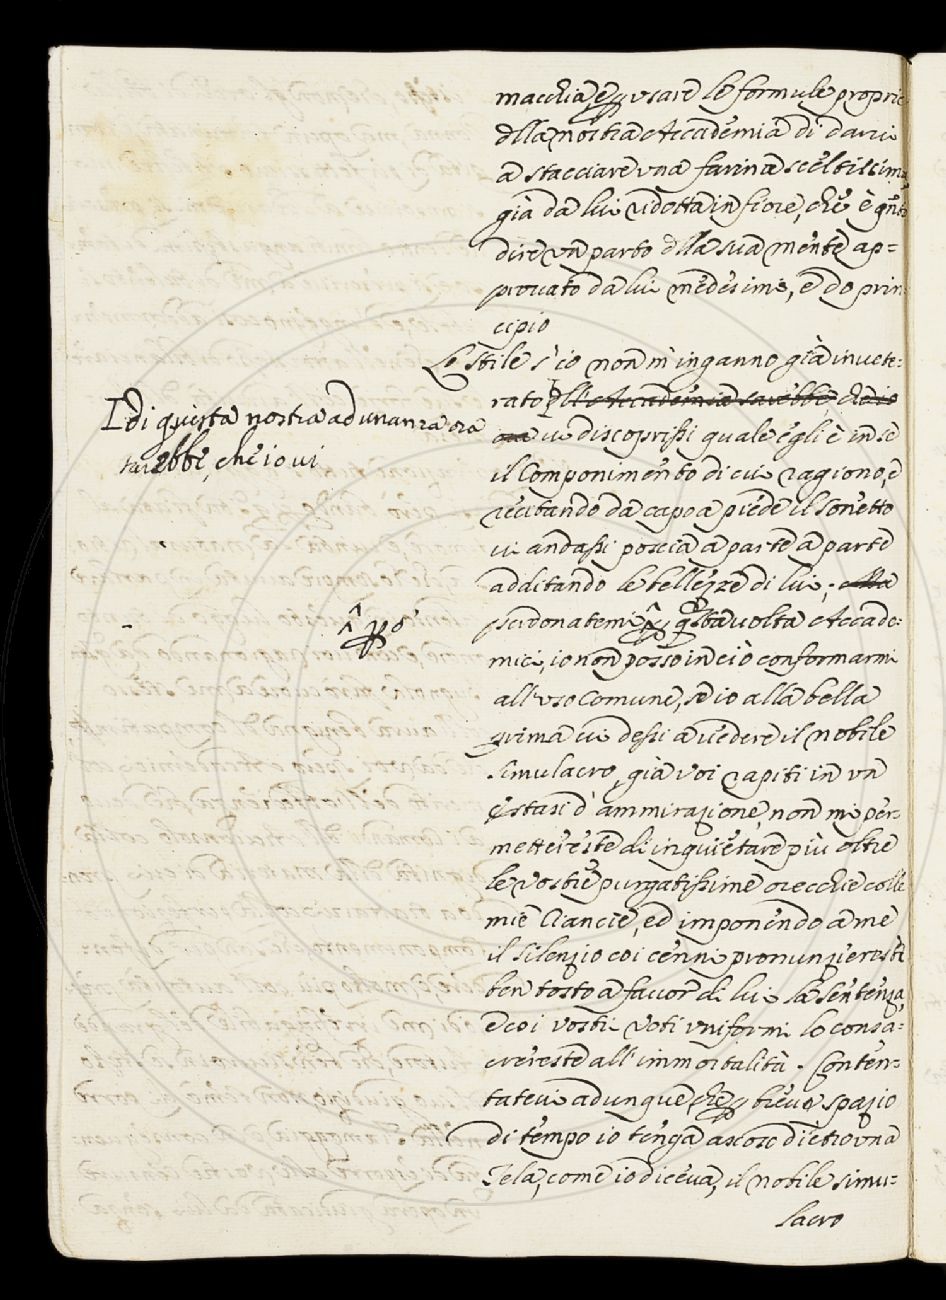 macchia e p usare le formule proprie
dlla nostra Accademia di darvi
a stacciare una farina sceltissima
già da lui ridotta in fiore, che è qnto
dire un parto dlla sua mente ap=
provato da lui medesimo, e do prin
cipio
Lo stile s'io non m'inganno già invete=
rato dlle Accademie sarebbe, ch'io
ora vi discoprissi quale egli è in se
Idi questa nostra adunanza ora
sarebbe, che io vi
il Componimento di cui ragiono, e
recitando da capo a piede il sonetto
vi andassi poscia a parte a parte
additando le bellezze di lui;
perdonatemi p qsta volta Accade=
mici, io non posso in ciò conformarmi
all'uso Comune, se io alla bella
prima vi dessi a vedere il nobile
simulacro, già voi rapiti in un
estasi d'ammirazione non mi per=
mettereste di inquietare più oltre
le vostre purgatissime orecchie colle
mie Ciancie, ed imponendo a me
il silenzio coi cenni pronunziereste
ben tosto a favor di lui la sentenza
e coi vostri voti uniformi lo consa=
crereste all'immortalità. Conten=
tatevi adunque, che p breve spazio
di tempo io tenga ascoso dietro una
Tela, come io diceva, il nobile simu=
lacro